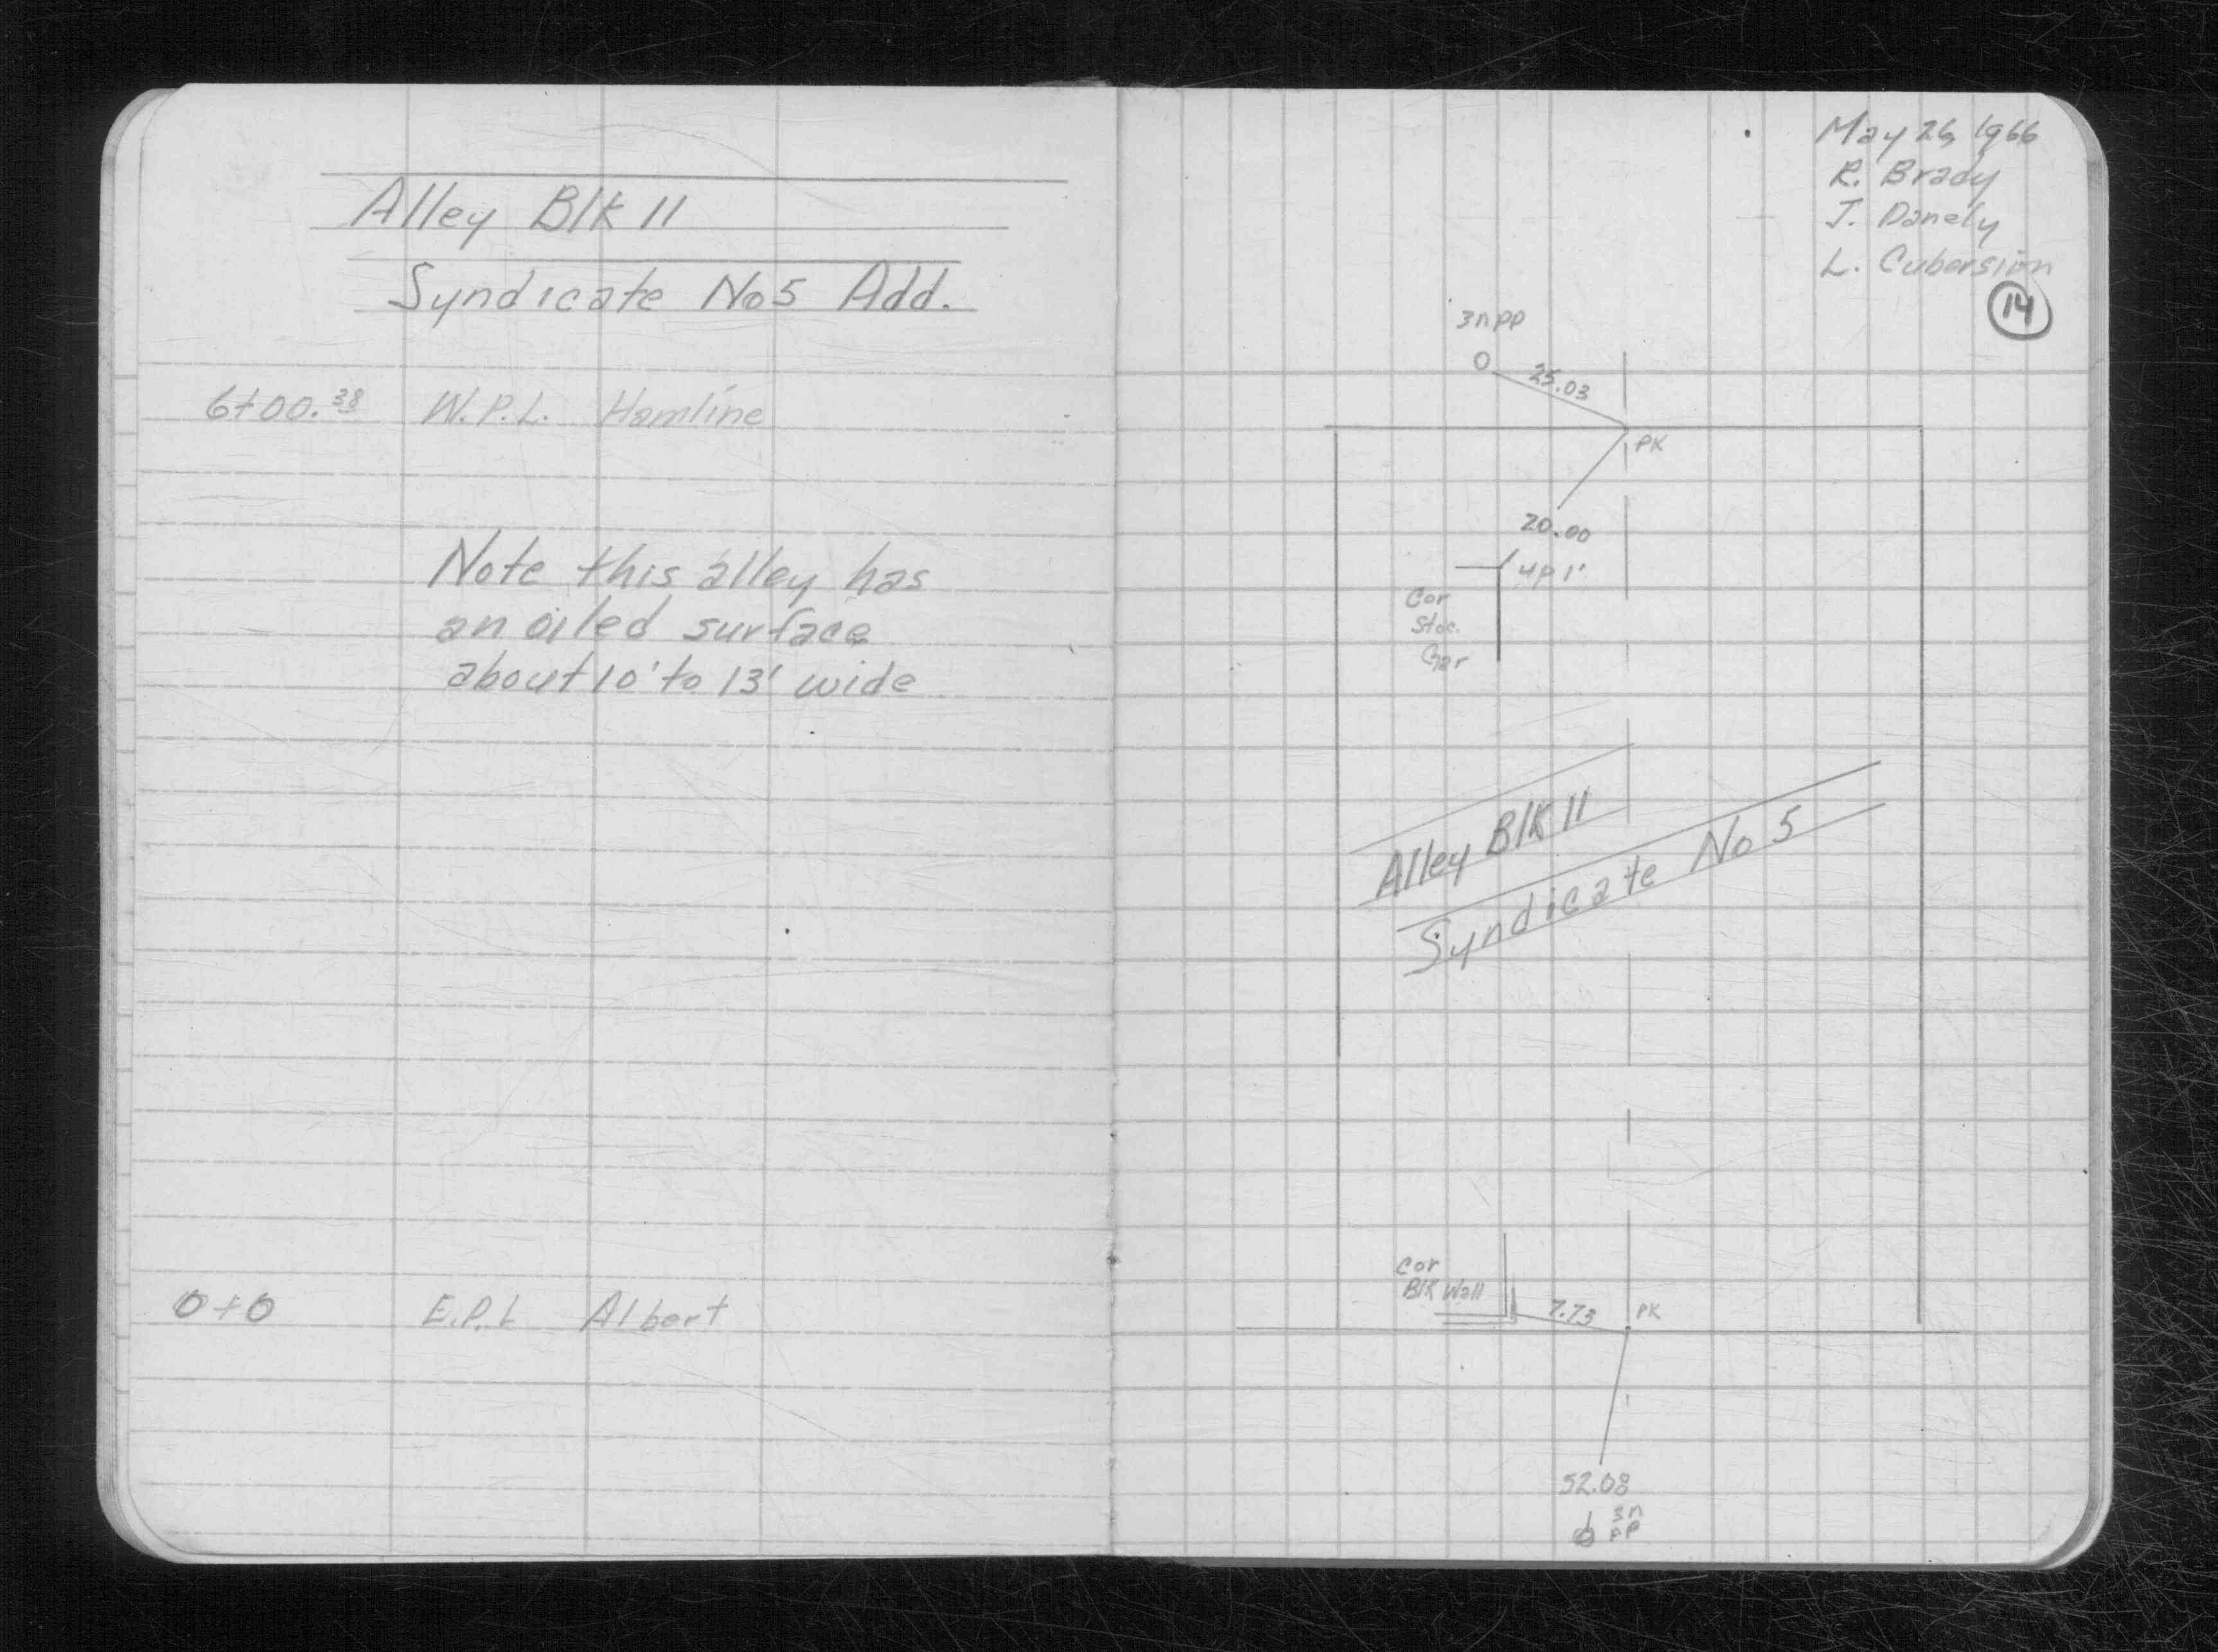 Alley Blk 11
Syndicate No 5 Add.
6+00.38 W.P.L. Hamline
Note this alley has
an oiled surface
about 10' to 13' wide
0+0 E.P.L Albert
May 26, 1966
R. Brady
J. Danely
L. Cubersion
14
3n PP
25.03
PK
20.00
up 1'
Cor
Stoc.
Gar
Alley Blk 11
Syndicate No 5
Cor
Blk Wall
7.73
PK
52.08
3n
PP